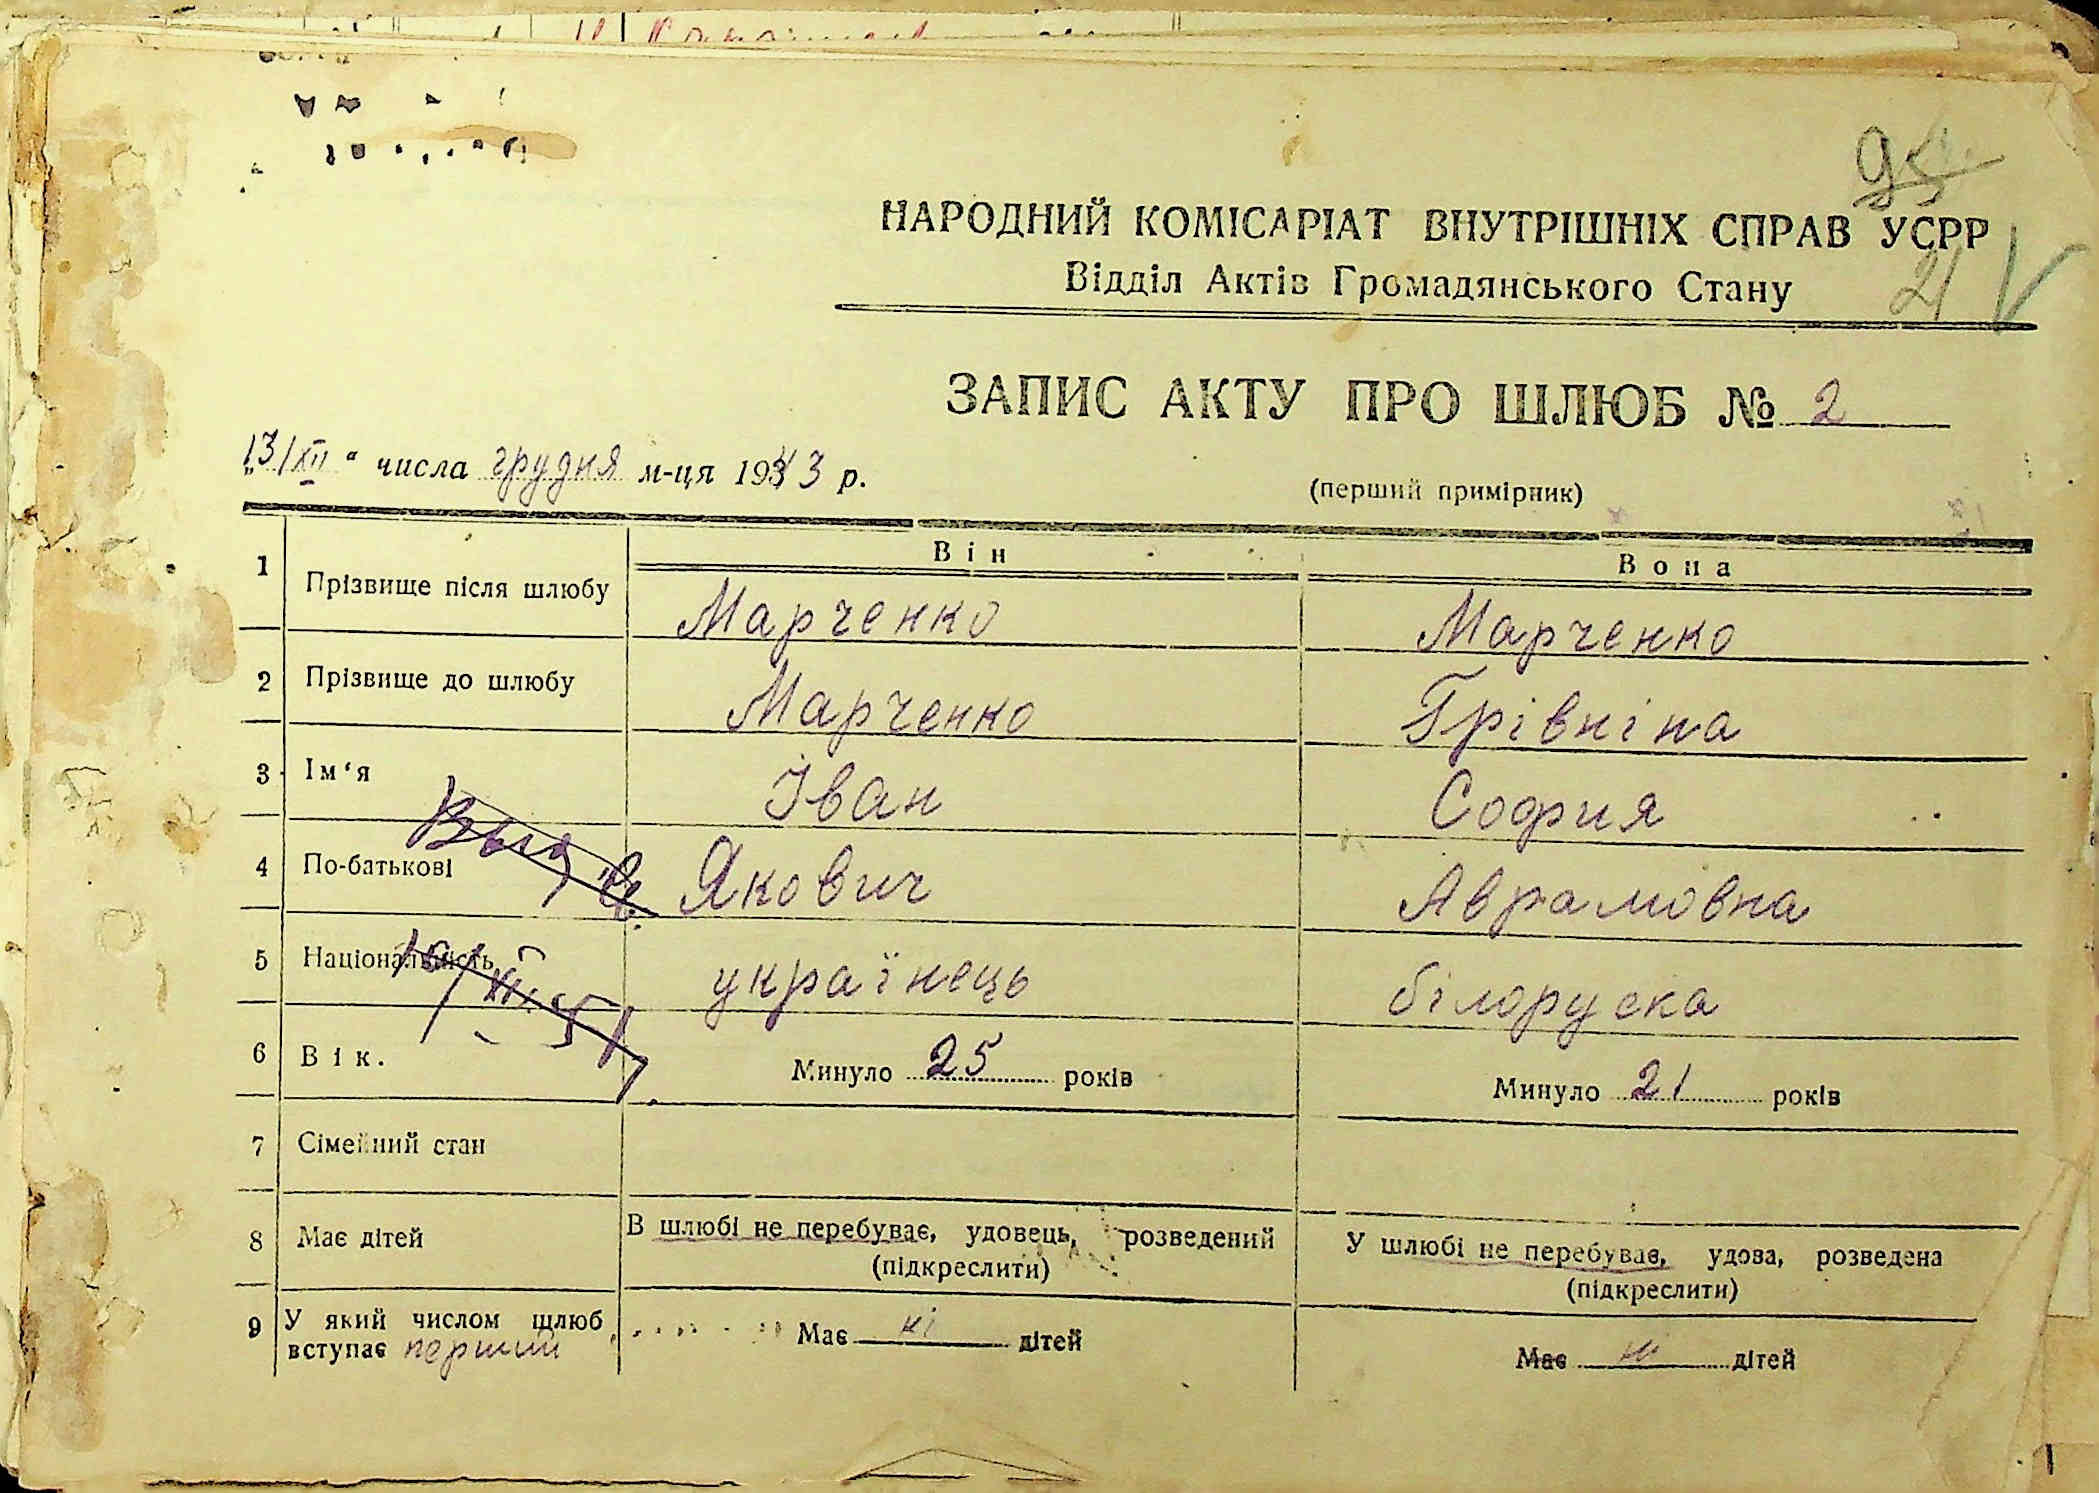 95
НАРОДНИЙ КОМІСАРІАТ ВНУТРІШНІХ СПРАВ УСРР
Відділ Актів Громадянського Стану
21
ЗАПИС АКТУ ПРО ШЛЮБ № 2
„13/XII“ числа грудня м-ця 1943 р.
(перший примірник)
Він Вона
1 Прізвище після шлюбу Марченко Марченко
2 Прізвище до шлюбу Марченко Грівніна
3 Ім‘я Іван София
4 По-батькові Якович Аврамовна
5 Національність українець білоруска
6 Вік. Минуло 25 років Минуло 21 років
7 Сімейний стан
8 Має дітей В шлюбі не перебуває, удовець, розведений (підкреслити) У шлюбі не перебуває, удова, розведена (підкреслити)
9 У який числом шлюб вступає перший Має ні дітей Має ні дітей